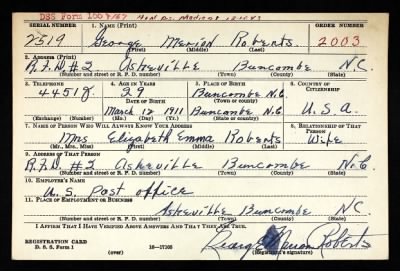 DSS Form 166
SERIAL NUMBER 1. NAME (Print) ORDER NUMBER
2519 George Merion Roberts 2003
(First) (Middle) (Last)
2. ADDRESS (Print)
R.F.D #2 Asheville Buncombe N.C.
(Number and street or R. F. D. number) (Town) (County) (State)
3. TELEPHONE 4. AGE IN YEARS 5. PLACE OF BIRTH 6. COUNTRY OF CITIZENSHIP
4451 29 Buncombe N.C.
DATE OF BIRTH (Town or county)
March 17 1911 Buncombe N.C. U.S.A.
(Exchange) (Number) (Mo.) (Day) (Yr.) (State or country)
7. NAME OF PERSON WHO WILL ALWAYS KNOW YOUR ADDRESS 8. RELATIONSHIP OF THAT PERSON
Mrs Elizabeth Emma Roberts Wife
(Mr., Mrs., Miss) (First) (Middle) (Last)
9. ADDRESS OF THAT PERSON
R.F.D #2 Asheville Buncombe N.C
(Number and street or R. F. D. number) (Town) (County) (State)
10. EMPLOYER'S NAME
U.S. Post office
11. PLACE OF EMPLOYMENT OR BUSINESS
Asheville Buncombe NC
(Number and street or R. F. D. number) (Town) (County) (State)
I AFFIRM THAT I HAVE VERIFIED ABOVE ANSWERS AND THAT THEY ARE TRUE.
REGISTRATION CARD
D. S. S. Form 1 (over) 16—17105 George Merion Roberts
(Registrant's signature)